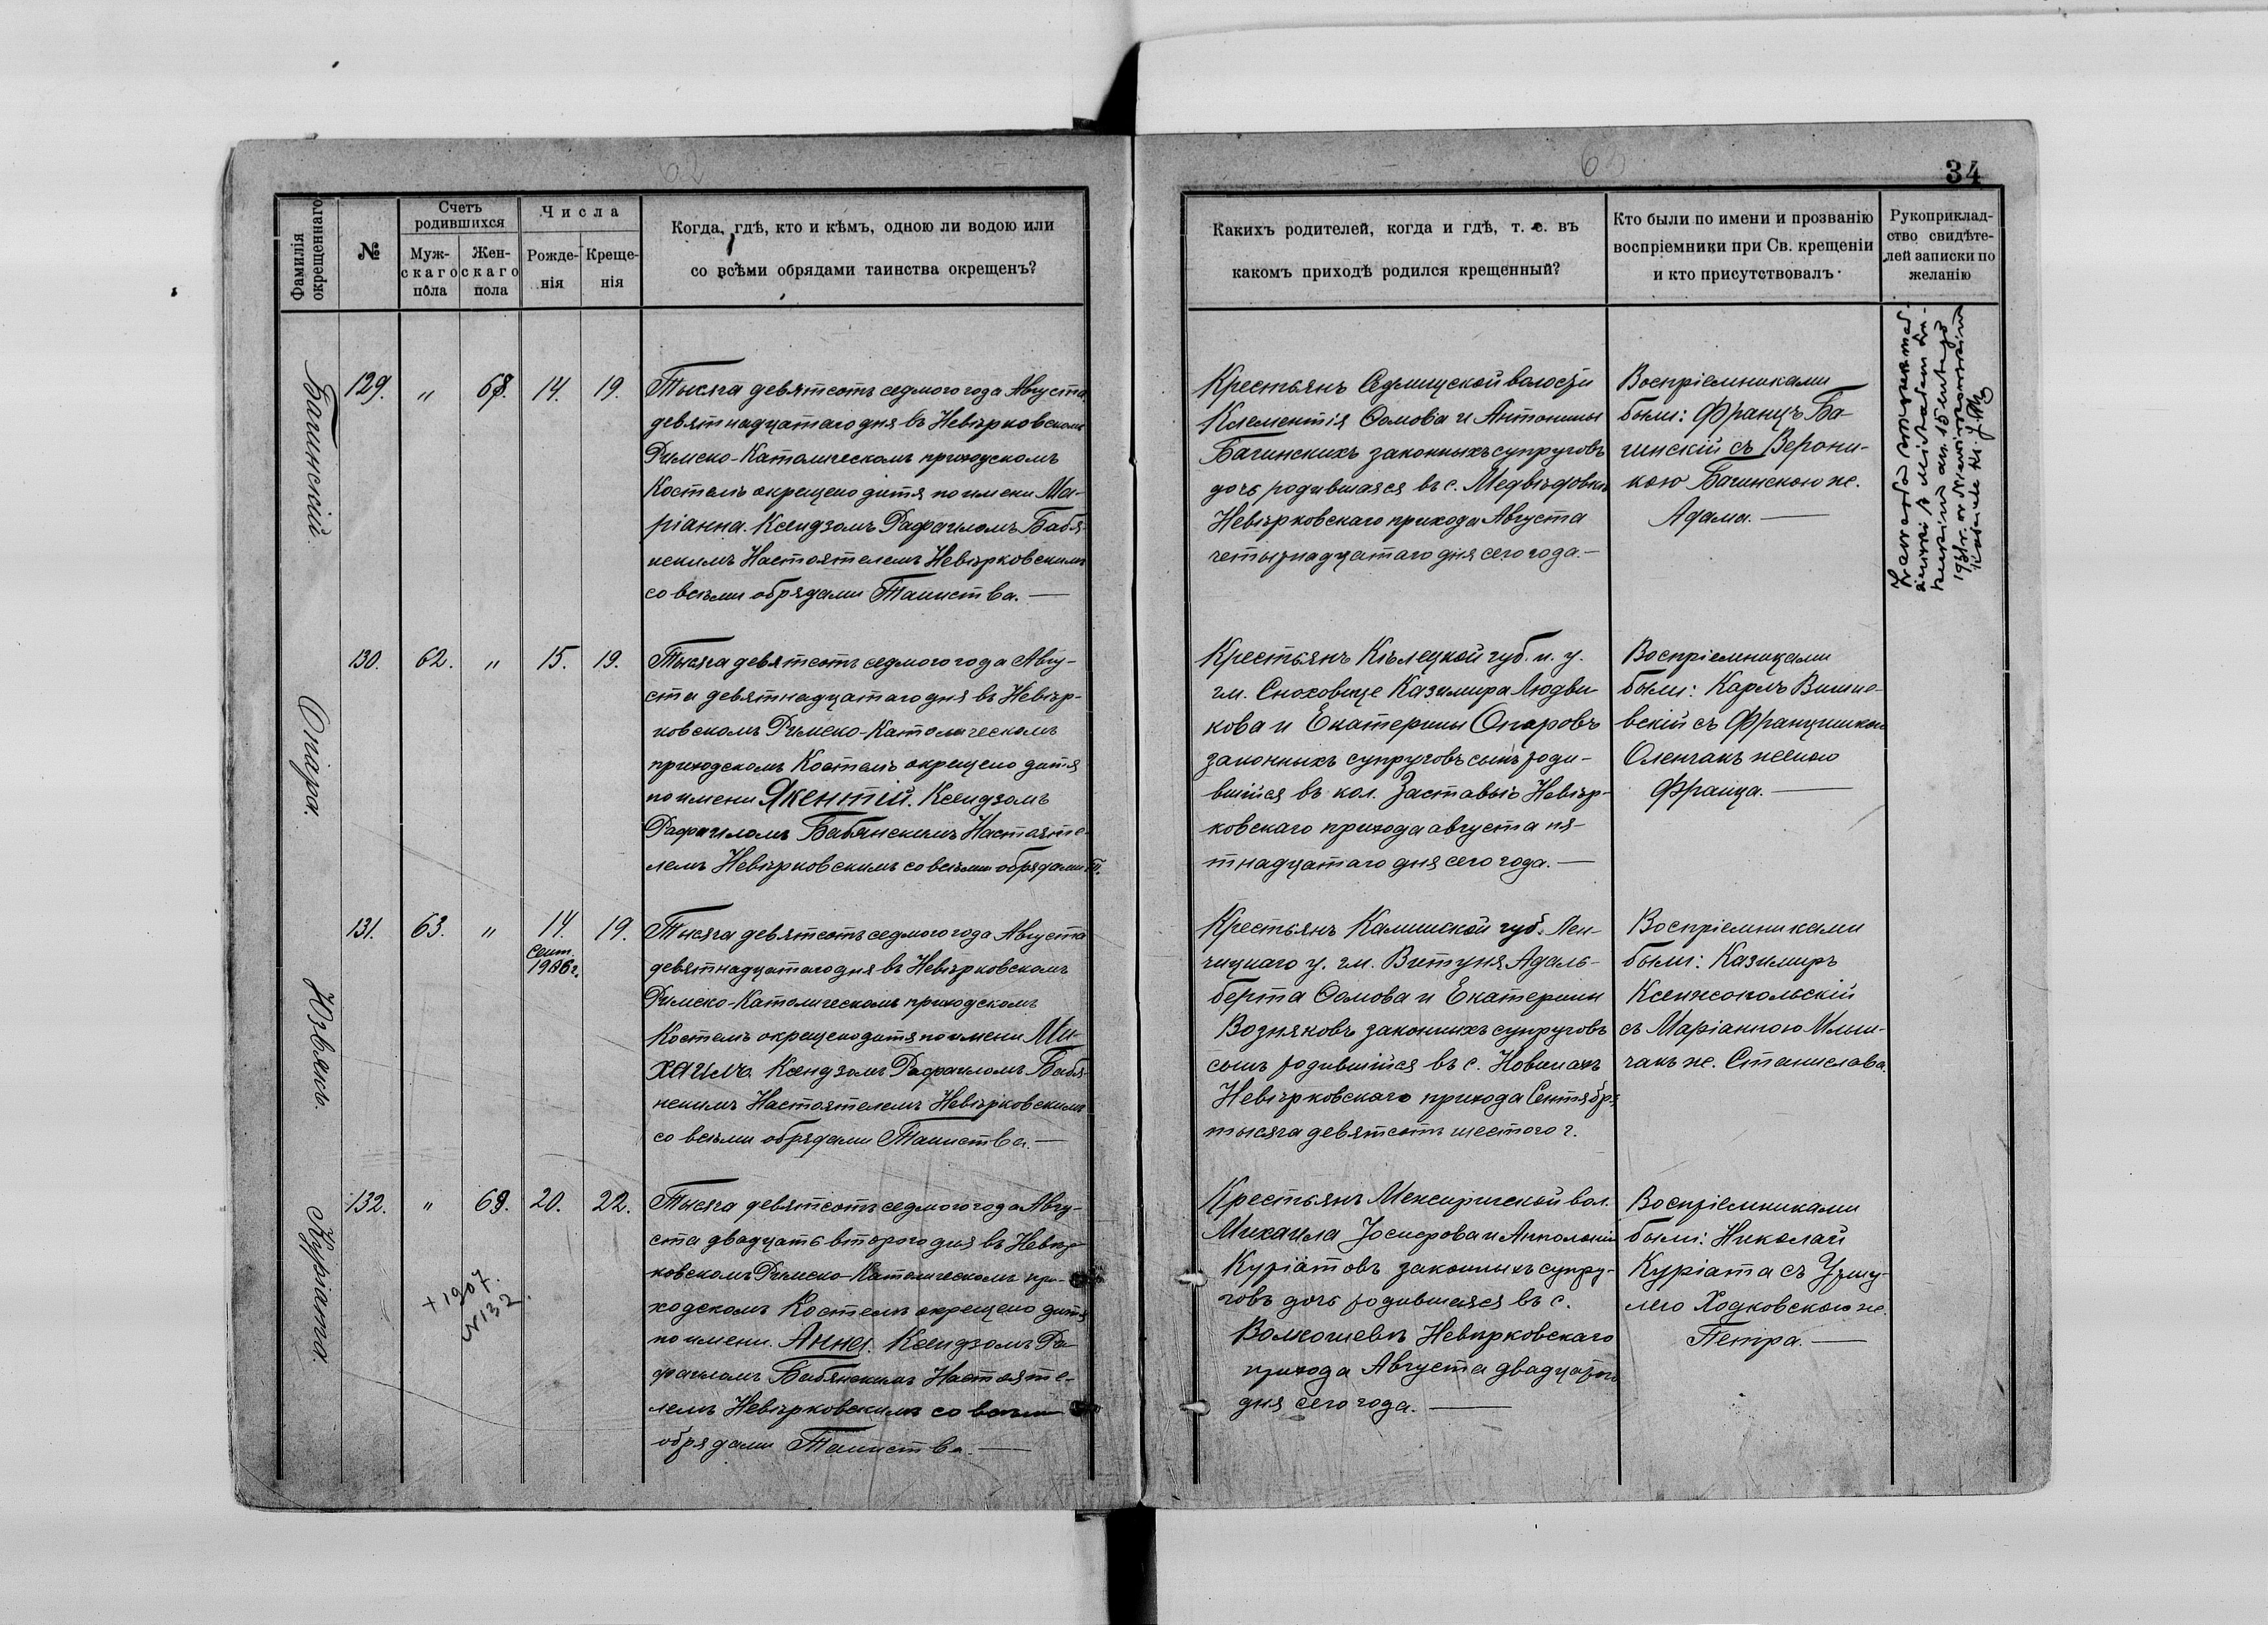 62
63
34
Фамилія окрещеннаго
№
Счетъ родившихся
Муж-
скаго
пола
Жен-
скаго
пола
Числа
Рожде-
нія
Креще-
нія
Когда, гдѣ, кто и кѣмъ, одною ли водою или
со всѣми обрядами таинства окрещенъ?
Какихъ родителей, когда и гдѣ, т. е. въ
какомъ приходѣ родился крещенный?
Кто были по имени и прозванію
воспріемники при Св. крещеніи
и кто присутствовалъ.
Рукоприклад-
ство свидѣте-
лей записки по
желанію
Багинскій.
129. " 68. 14. 19.
Тысяча девятсотъ седмого года Августа
девятнадцатаго дня въ Невѣрковскомъ
Римско-Католическомъ приходскомъ
Костелѣ окрещено дитя по имени Ма-
ріанна. Ксендзомъ Рафаиломъ Бабя-
нскимъ Настоятелемъ Невѣрковскимъ
со всѣми обрядами Таинства.—
Крестьянъ Седлищской волости
Климентія Ѳомова и Антонины
Багинскихъ законныхъ супруговъ
дочь родившаяся въ с. Медвѣдовкѣ
Невѣрковскаго прихода Августа
четырнадцатаго дня сего года.—
Воспріемниками
были: Францъ Ба-
гинскій съ Верони-
кою Багинскою ж.
Адама.—
Опара.
130. 62. " 15. 19.
Тысяча девятсотъ седмого года Авгу-
ста девятнадцатаго дня въ Невѣр-
ковскомъ Римско-Католическомъ
приходскомъ Костелѣ окрещено дитя
по имени Якентій. Ксендзомъ
Рафаиломъ Бабянскимъ Настояте-
лемъ Невѣрковскимъ со всѣми обрядами Т.
Крестьянъ Кѣлецкой губ. и. у.
гм. Сноховице Казимира Людви-
кова и Екатерины Опаровъ
законныхъ супруговъ сынъ роди-
вшійся въ кол. Заставьѣ Невѣр-
ковскаго прихода августа пя-
тнадцатаго дня сего года.—
Воспріемниками
были: Карлъ Вишне-
вскій съ Францишкою
Оленчакъ женою
Франца.—
Узьвякъ.
131. 63. " 14. 19.
Сент.
1906 г.
Тысяча девятсотъ седмого года Августа
девятнадцатаго дня въ Невѣрковскомъ
Римско-Католическомъ приходскомъ
Костелѣ окрещено дитя по имени Ми-
хаилъ. Ксендзомъ Рафаиломъ Бабя-
нскимъ Настоятелемъ Невѣрковскимъ
со всѣми обрядами Таинства.—
Крестьянъ Калишской губ. Лен-
чицкаго у. гм. Витуня Адаль-
берта Ѳомова и Екатерины
Возняковъ законныхъ супруговъ
сынъ родившійся въ с. Новинахъ
Невѣрковскаго прихода Сентября
тысяча девятсотъ шестого г.
Воспріемниками
были: Казимиръ
Ксенжопольскій
съ Маріанною
ж. Станислава.
Куріата.
132. " 69. 20. 22.
+ 1907.
N 132.
Тысяча девятсотъ седмого года Авгу-
ста двадцать второго дня въ Невѣр-
ковскомъ Римско-Католическомъ при-
ходскомъ Костелѣ окрещено дитя
по имени. Анна. Ксендзомъ Ра-
фаиломъ Бабянскимъ Настояте-
лемъ Невѣрковскимъ со всѣми
обрядами Таинства.—
Крестьянъ Межиричской вол.
Михаила Іосифова и Апполоніи
Куріатовъ законныхъ супру-
говъ дочь родившаяся въ с.
Волкошевѣ Невѣрковскаго
прихода Августа двадцатаго
дня сего года.—
Воспріемниками
были: Николай
Куріата съ Уршу-
лею Ходковскою ж.
Петра.—